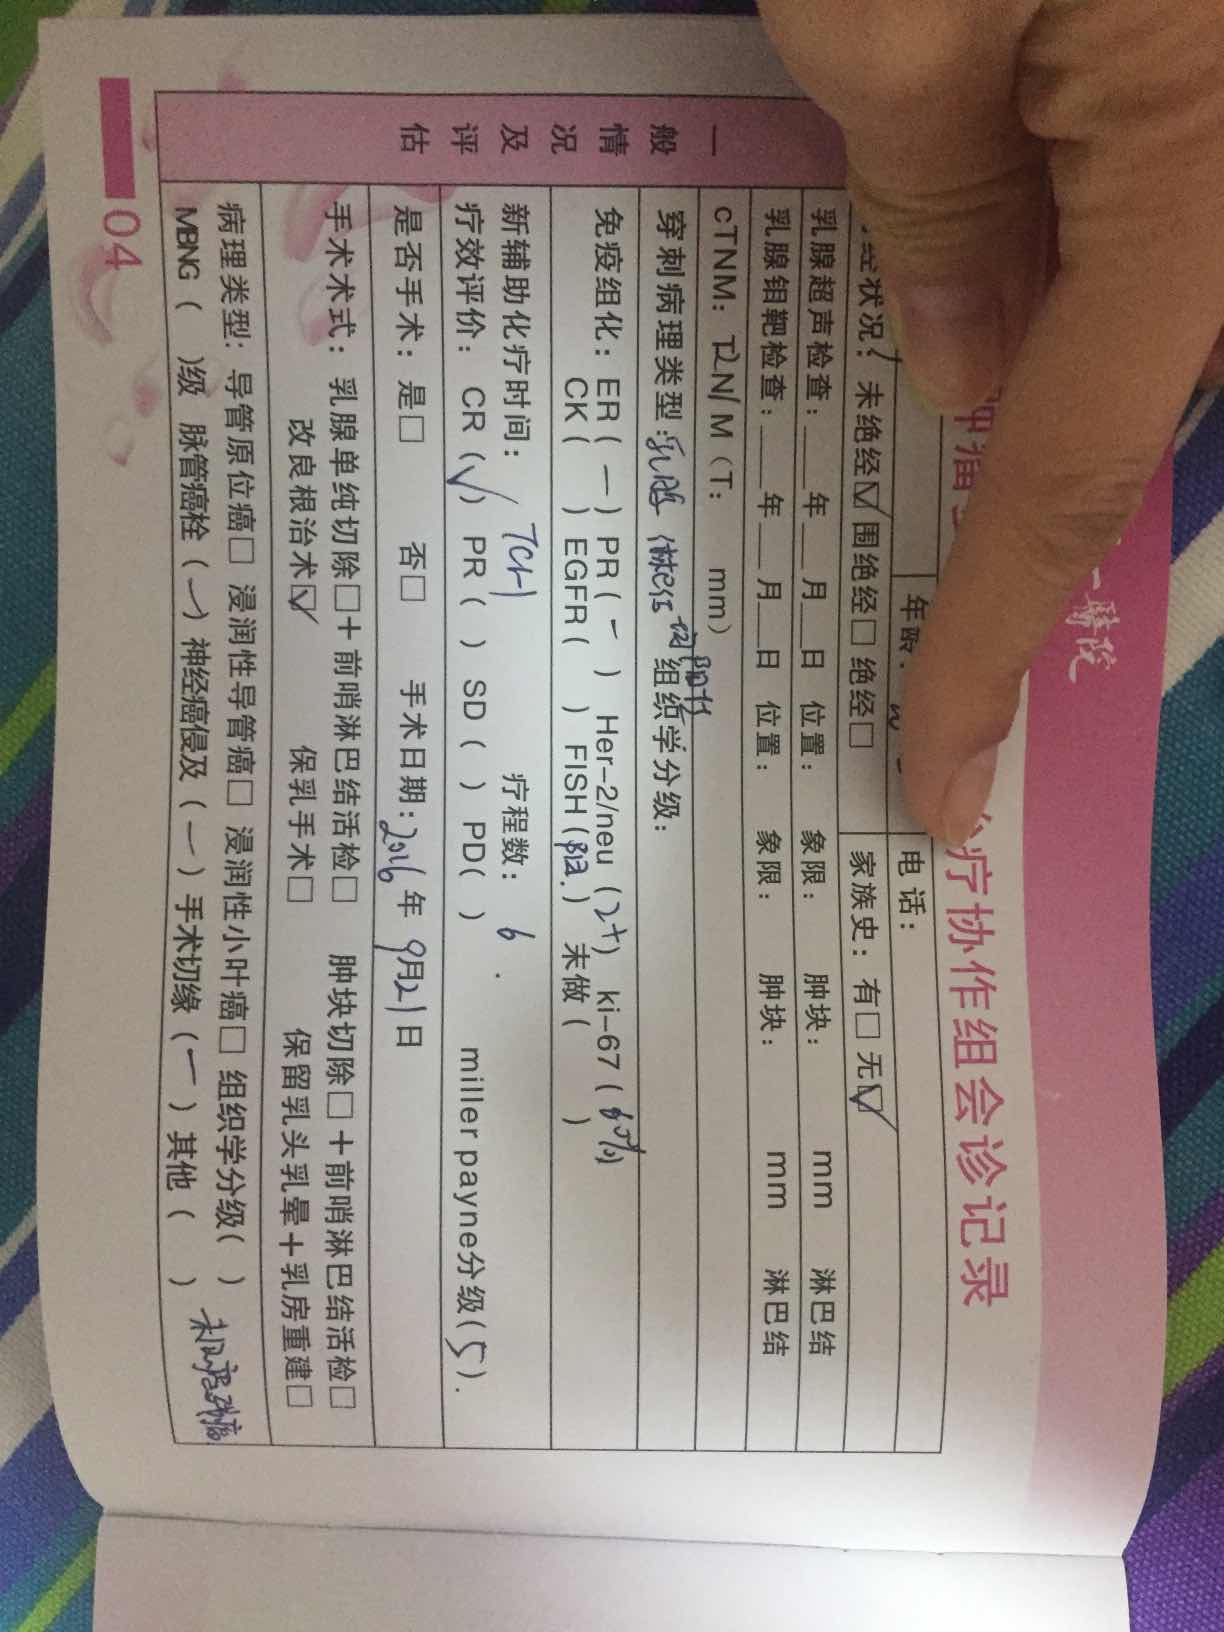 一醫院
治疗协作组会诊记录
年龄: 电话:
经状况: 未绝经☑ 围绝经□ 绝经□ 家族史: 有□ 无☑
乳腺超声检查: 年 月 日 位置: 象限: 肿块: mm 淋巴结
乳腺钼靶检查: 年 月 日 位置: 象限: 肿块: mm 淋巴结
cTNM: T2N1M (T: mm)
穿刺病理类型: 乳腺 组织学分级:
免疫组化: ER ( — ) PR ( — ) Her-2/neu (2+) ki-67 ( )
CK ( ) EGFR ( ) FISH (阳.) 未做 ( )
新辅助化疗时间: TCH 疗程数: 6.
疗效评价: CR (√) PR ( ) SD ( ) PD( ) miller payne分级(5).
是否手术: 是□ 否□ 手术日期: 2016年9月21日
手术术式: 乳腺单纯切除□+前哨淋巴结活检□ 肿块切除□+前哨淋巴结活检□
改良根治术☑ 保乳手术□ 保留乳头乳晕+乳房重建□
病理类型: 导管原位癌□ 浸润性导管癌□ 浸润性小叶癌□ 组织学分级( )
MBNG ( )级 脉管癌栓 (—) 神经癌侵及 (—) 手术切缘 (—) 其他 ( ) 未见残癌
一般情况及评估
04